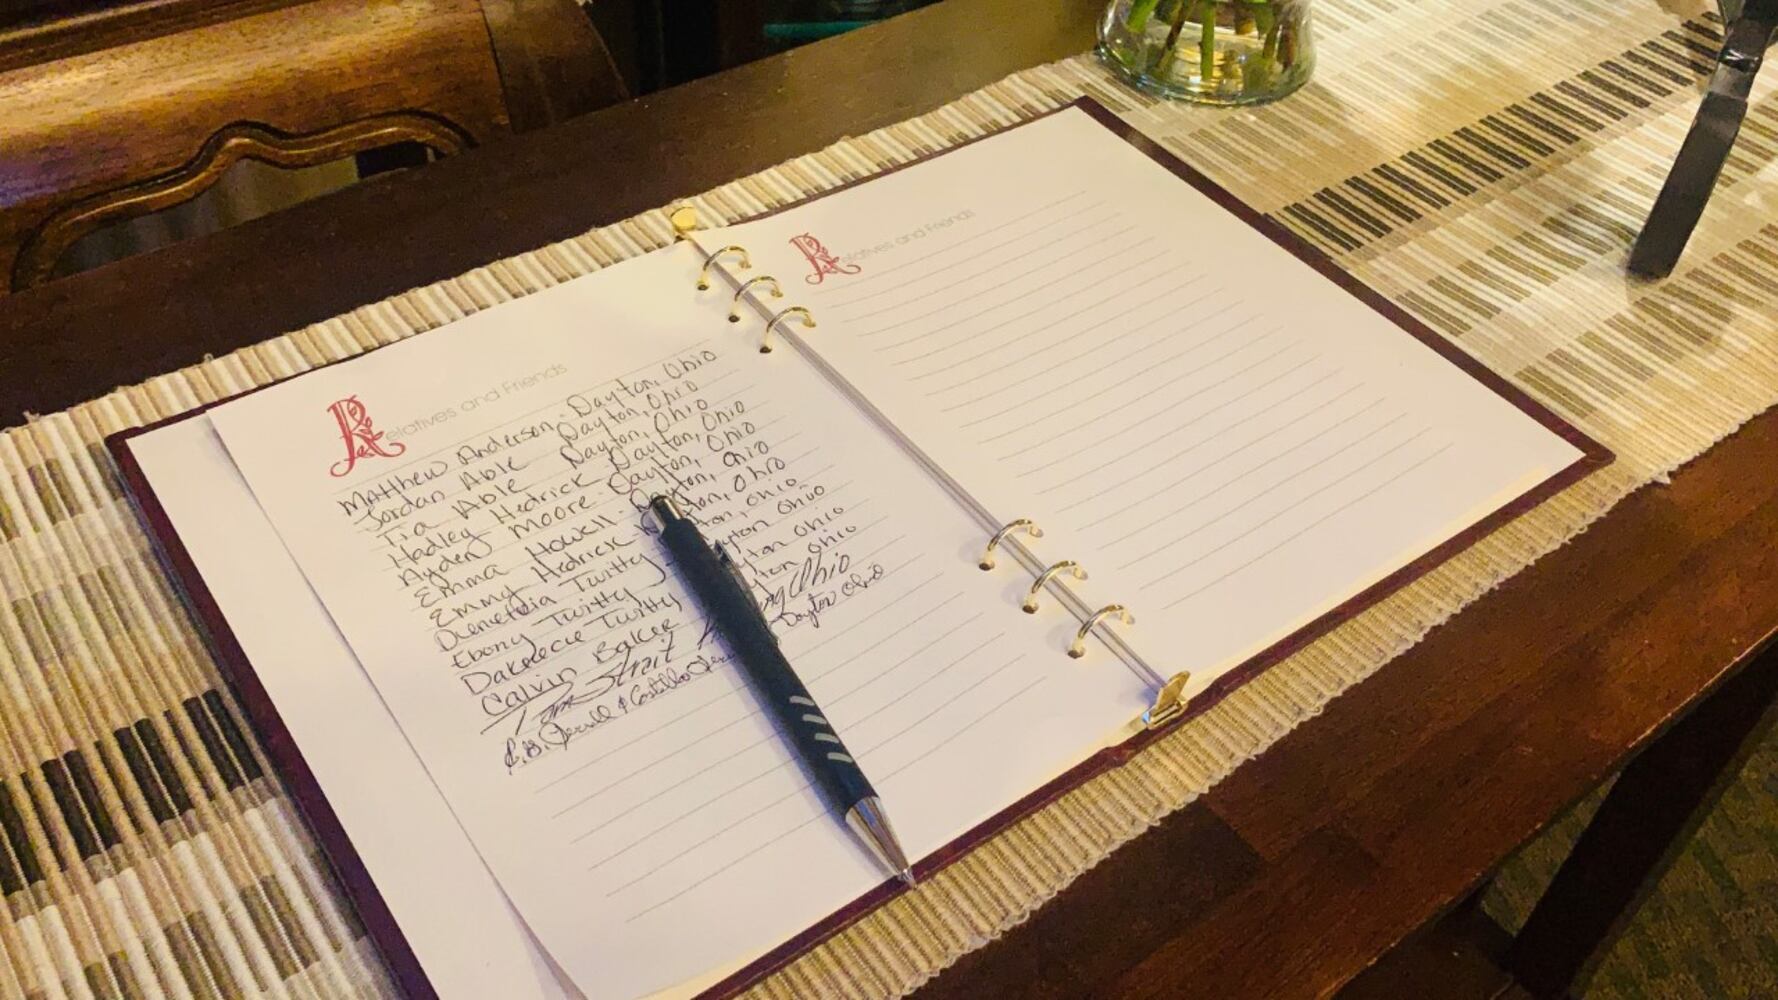 Relatives and Friends
Matthew Anderson - Dayton, Ohio
Jordan Able Dayton, Ohio
Tia Able Dayton, Ohio
Hadley Hedrick Dayton, Ohio
Ayden Moore - Dayton, Ohio
Emma Howell - Dayton, Ohio
Emmy Hedrick Dayton, Ohio
Twitty Ohio
Ebony Twitty Dayton Ohio
Twitty Dayton Ohio
Calvin Baker Ohio
Tom Strait Ohio
Dayton Ohio
Relatives and Friends